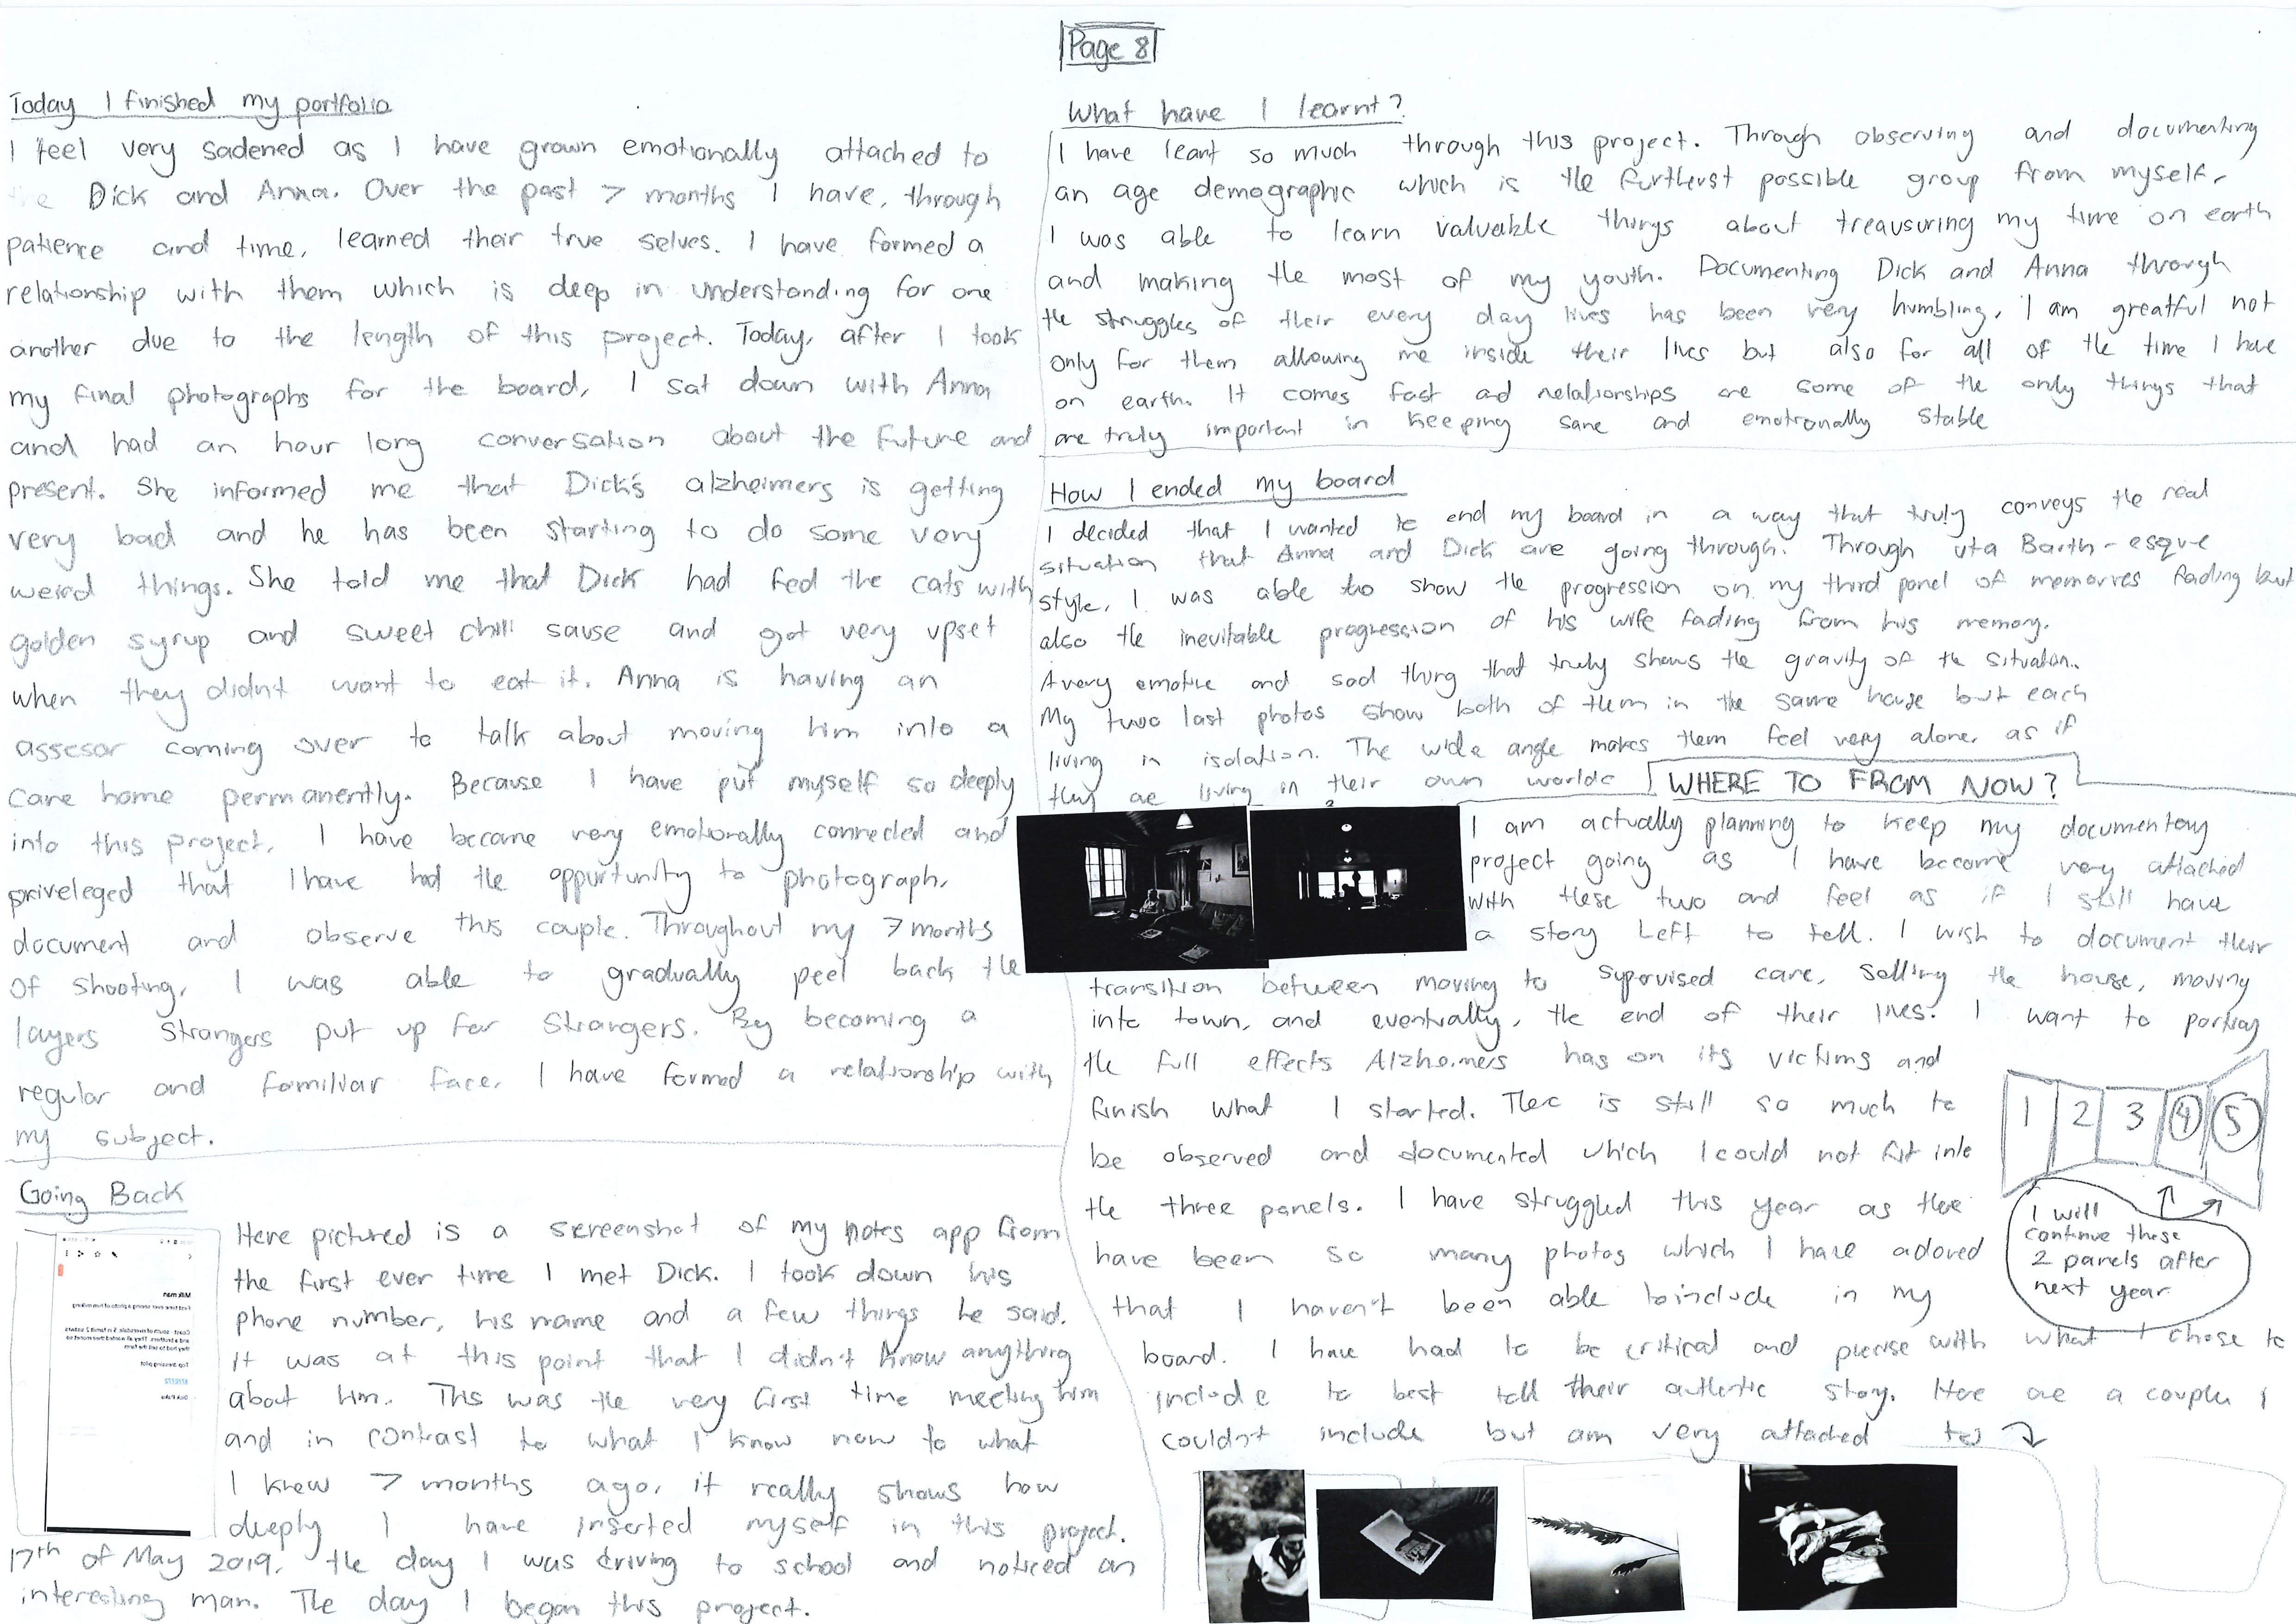 Page 8
Today I finished my portfolio
I feel very sadened as I have grown emotionally attached to
the Dick and Anna. Over the past 7 months I have, through
patience and time, learned their true selves. I have formed a
relationship with them which is deep in understanding for one
another due to the length of this project. Today, after I took
my final photographs for the board, I sat down with Anna
and had an hour long conversation about the future and
present. She informed me that Dick's alzheimers is getting
very bad and he has been starting to do some very
weird things. She told me that Dick had fed the cats with
golden syrup and sweet chilli sause and got very upset
when they didnt want to eat it. Anna is having an
assesor coming over to talk about moving him into a
care home permanently. Because I have put myself so deeply
into this project, I have became very emotionally connected and
priveleged that I have had the oppurtunity to photograph,
document and observe this couple. Throughout my 7 months
of shooting, I was able to gradually peel back the
layers strangers put up for strangers. By becoming a
regular and familiar face, I have formed a relationship with
my subject.
Going Back
Here pictured is a screenshot of my notes app from
the first ever time I met Dick. I took down his
phone number, his name and a few things he said.
It was at this point that I didn't know anything
about him. This was the very first time meeting him
and in contrast to what I know now to what
I knew 7 months ago, it really shows how
deeply I have inserted myself in this project.
17th of May 2019, the day I was driving to school and noticed an
interesting man. The day I began this project.
Milk man
First time ever seeing a photo of him milking
Coast - south of riversdale. 5 in family 2 sisters
and a brothers. They all wanted their money so
they had to sell the farm
Top dressing pilot
What have I learnt?
I have leant so much through this project. Through observing and documenting
an age demographic which is the furtherst possible group from myself,
I was able to learn valuable things about treausuring my time on earth
and making the most of my youth. Documenting Dick and Anna through
the struggles of their every day lives has been very humbling, I am greatful not
only for them allowing me inside their lives but also for all of the time I have
on earth. It comes fast and relationships are some of the only things that
are truly important in keeping sane and emotionally stable
How I ended my board
I decided that I wanted to end my board in a way that truly conveys the real
situation that Anna and Dick are going through. Through uta Barth-esque
style, I was able to show the progression on my third panel of memorres fading but
also the inevitable progression of his wife fading from his memory.
A very emotive and sad thing that truly shows the gravity of the situation.
My two last photos show both of them in the same house but each
living in isolation. The wide angle makes them feel very alone, as if
they are living in their own worlds
WHERE TO FROM NOW?
I am actually planning to keep my documentary
project going as I have become very attached
with these two and feel as if I still have
a story left to tell. I wish to document their
transition between moving to supervised care, selling the house, moving
into town, and eventually, the end of their lives. I want to portray
the full effects Alzheimers has on its victims and
finish what I started. There is still so much to
be observed and documented which I could not fit into
the three panels. I have struggled this year as there
have been so many photos which I have adored
that I haven't been able to include in my
board. I have had to be critical and precise with what I chose to
include to best tell their authentic story. Here are a couple I
couldn't include but am very attached to
1 2 3 4 5
I will
continue these
2 panels after
next year